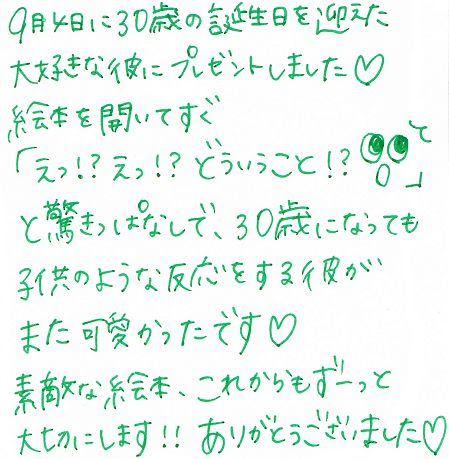 9月4日に30歳の誕生日を迎えた
大好きな彼にプレゼントしました♡
絵本を開いてすぐ
「えっ!?えっ!?どういうこと!?」と
と驚きっぱなしで、30歳になっても
子供のような反応をする彼が
また可愛かったです♡
素敵な絵本、これからもずーっと
大切にします!!ありがとうございました♡